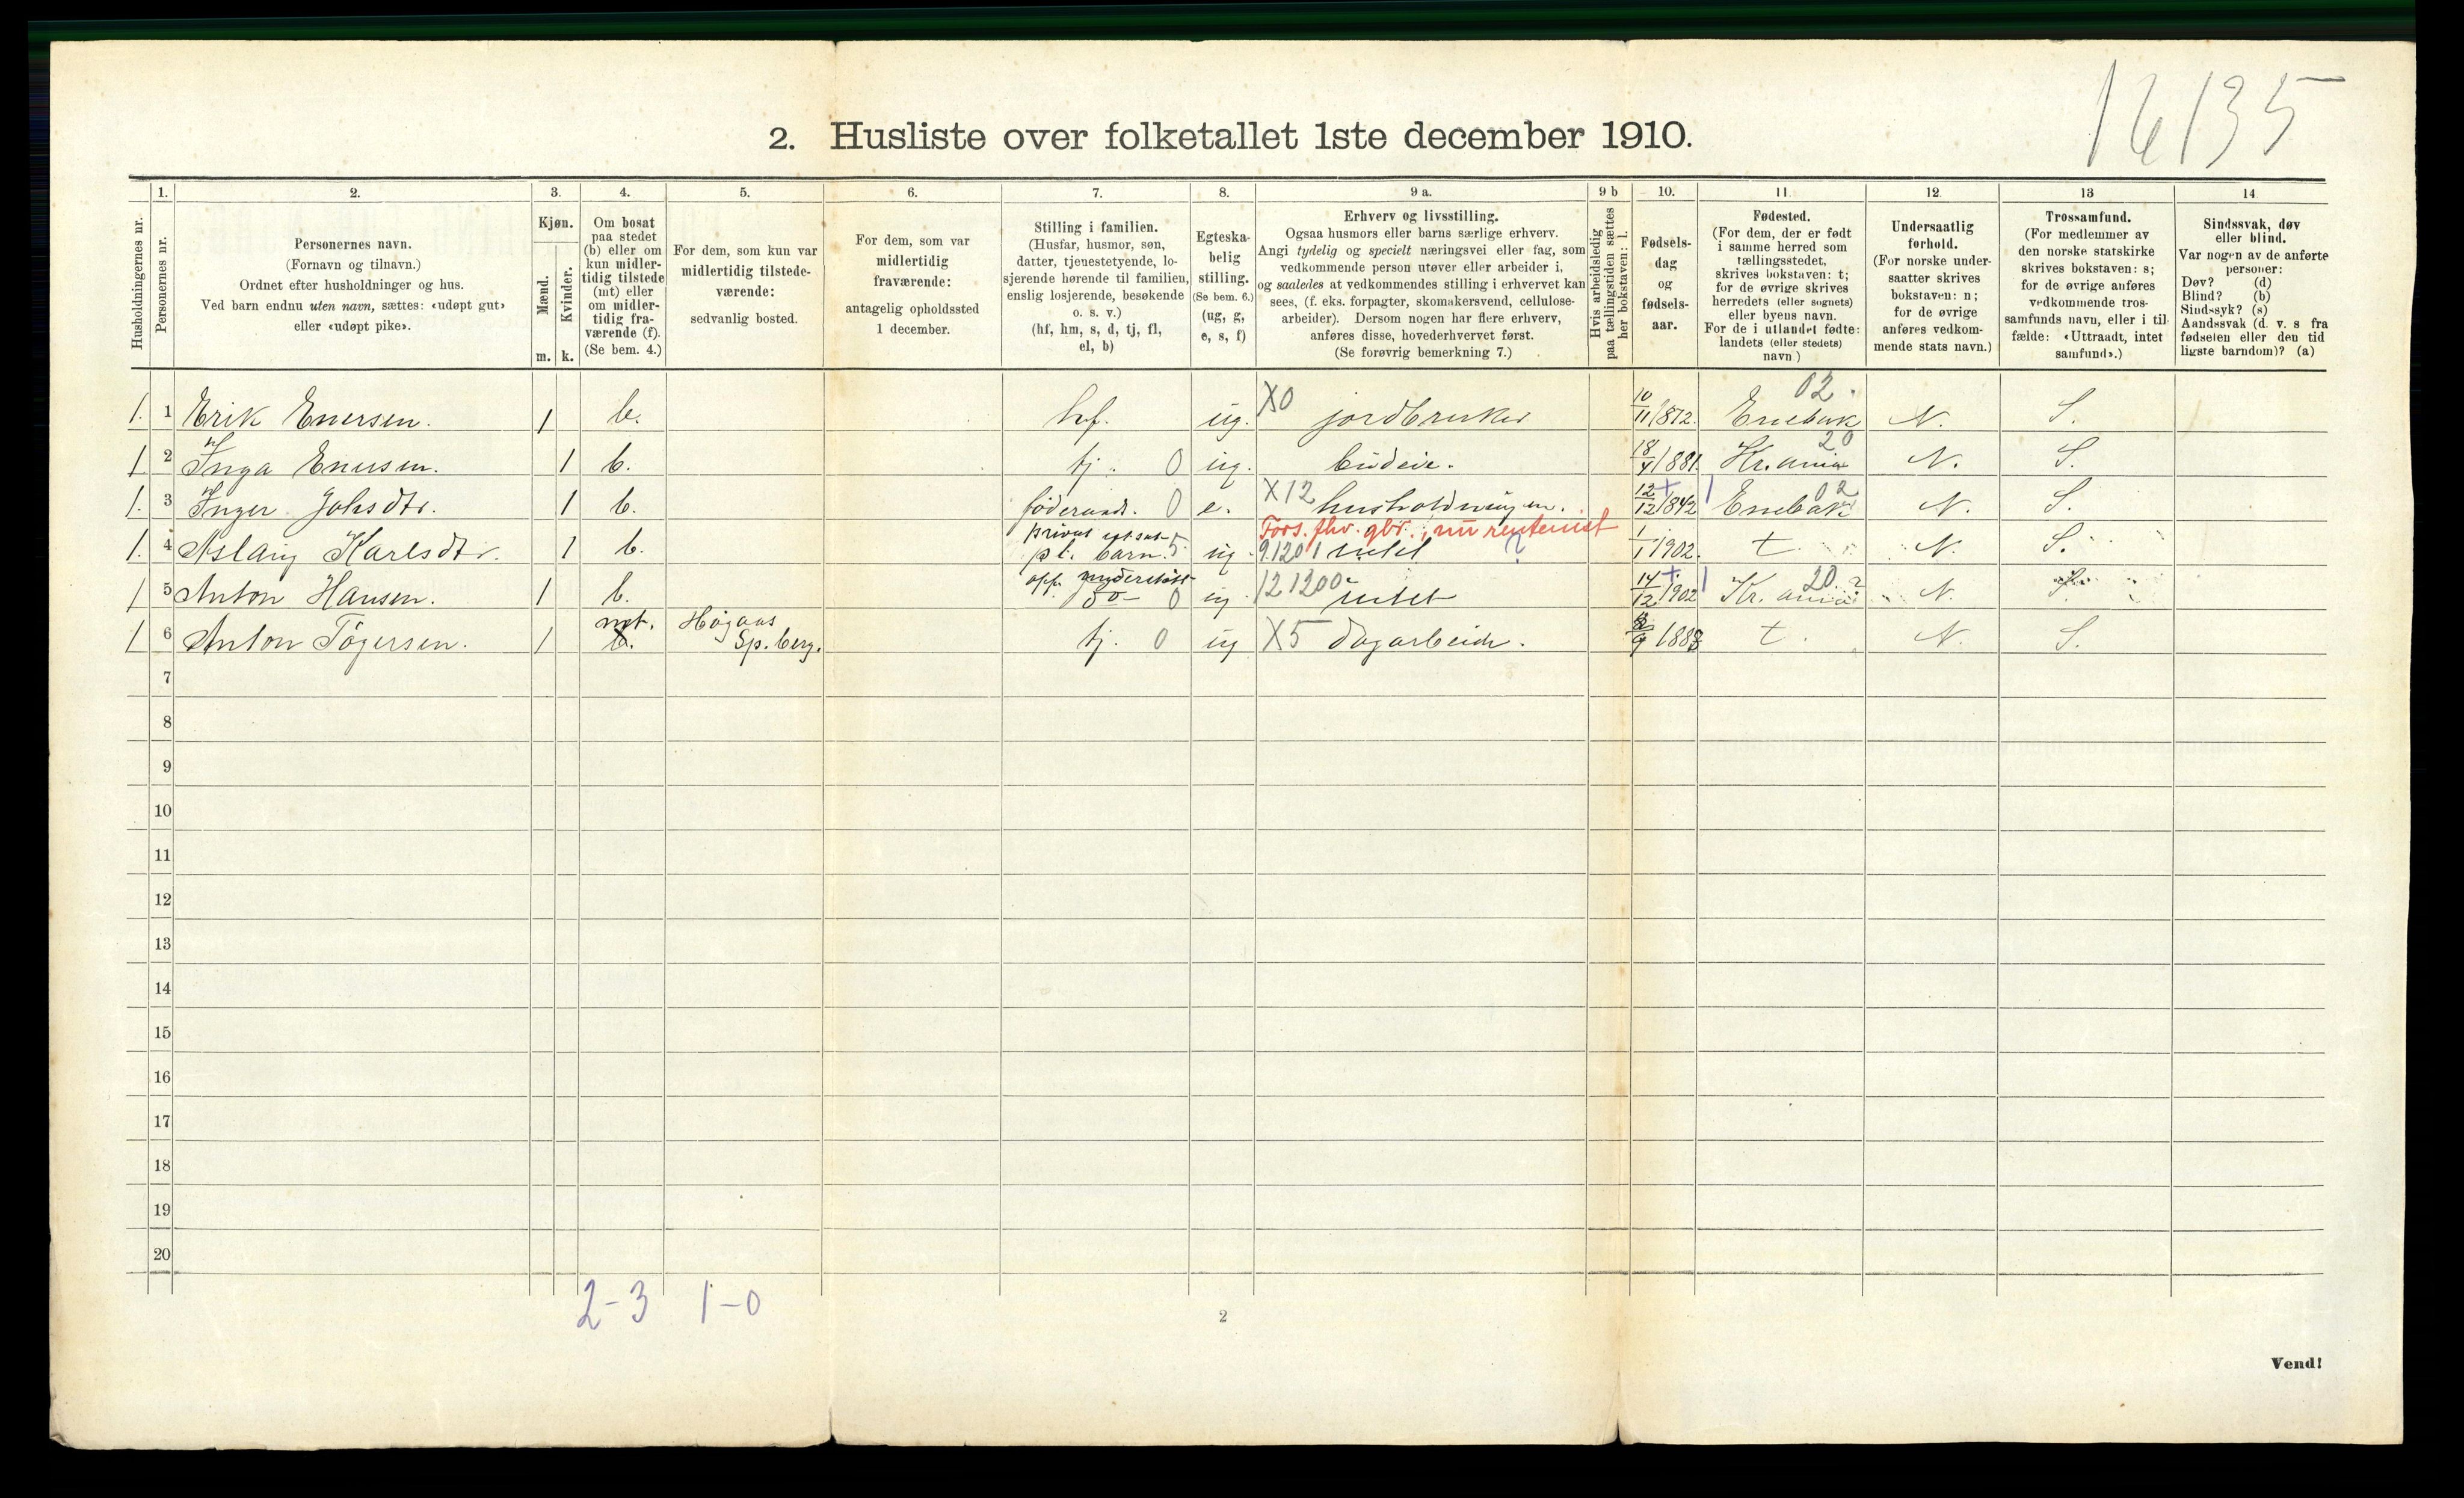 16135
2. Husliste over folketallet 1ste december 1910.
Husholdningernes nr.
1.
Personernes nr.
2.
Personernes navn.
(Fornavn og tilnavn.)
Ordnet efter husholdninger og hus.
Ved barn endnu uten navn, sættes: «udøpt gut»
eller «udøpt pike».
3.
Kjøn.
Mænd.
Kvinder.
m. k.
4.
Om bosat
paa stedet
(b) eller om
kun midler-
tidig tilstede
(mt) eller
om midler-
tidig fra-
værende (f).
(Se bem. 4.)
5.
For dem, som kun var
midlertidig tilstede-
værende:
sedvanlig bosted.
6.
For dem, som var
midlertidig
fraværende:
antagelig opholdssted
1 december.
7.
Stilling i familien.
(Husfar, husmor, søn,
datter, tjenestetyende, lo-
sjerende hørende til familien,
enslig losjerende, besøkende
o. s. v.)
(hf, hm, s, d, tj, fl,
el, b)
8.
Egteska-
belig
stilling.
(Se bem. 6.)
(ug, g,
e, s, f)
9 a.
Erhverv og livsstilling.
Ogsaa husmors eller barns særlige erhverv.
Angi tydelig og specielt næringsvei eller fag, som
vedkommende person utøver eller arbeider i,
og saaledes at vedkommendes stilling i erhvervet kan
sees, (f. eks. forpagter, skomakersvend, cellulose-
arbeider). Dersom nogen har flere erhverv,
anføres disse, hovederhvervet først.
(Se forøvrig bemerkning 7.)
9 b
Hvis arbeidsledig
paa tællingstiden sættes
her bokstaven: l.
10.
Fødsels-
dag
og
fødsels-
aar.
11
Fødested.
(For dem, der er født
i samme herred som
tællingsstedet,
skrives bokstaven: t;
for de øvrige skrives
herredets (eller sognets)
eller byens navn.
For de i utlandet fødte:
landets (eller stedets)
navn)
12
Undersaatlig
forhold.
(For norske under-
saatter skrives
bokstaven: n;
for de øvrige
anføres vedkom-
mende stats navn.)
13
Trossamfund.
(For medlemmer av
den norske statskirke
skrives bokstaven: s;
for de øvrige anføres
vedkommende tros-
samfunds navn, eller i til-
fælde: «Uttraadt, intet
samfund».)
14
Sindssvak, døv
eller blind.
Var nogen av de anførte
personer:
Døv? (d)
Blind? (b)
Sindssyk? (s)
Aandssvak (d. v. s fra
fødselen eller den tid
ligste barndom)? (a)
02.
1. 1 Erik Enersen. 1 b. hf. ug. X0 jordbruker 10/11 1872. Enebak N. S.
20
1 2 Inga Enersen. 1 b. tj. 0 ug. budeie. 18/4 1881. Kr.ania N. S.
02
1. 3 Inger Johsdtr. 1 b. føderaad. 0 e. X12 husholdningen. 12/12 1842 Enebak N. S.
Fors. fhv. gbr.; nu rentenist
privat
1. 4 Aslaug Karlsdtr. 1 b. pl. barn. 5 ug. 9.1201 intet 1/1 1902. t N. S.
understøtt
20
1 5 Anton Hansen. 1 b. do 0 ug. 12 1200 intet 14/12 1902 Kr. ania N. S.
mt. Høgaas
1 6 Anton Tøgersen. 1 b. Sp.berg. tj. 0 ug X5 dagarbeider. 9 1888 t. N. S.
7
8
9
10
11
12
13
14
15
16
17
18
19
20
2-3 1-0
2
Vend!